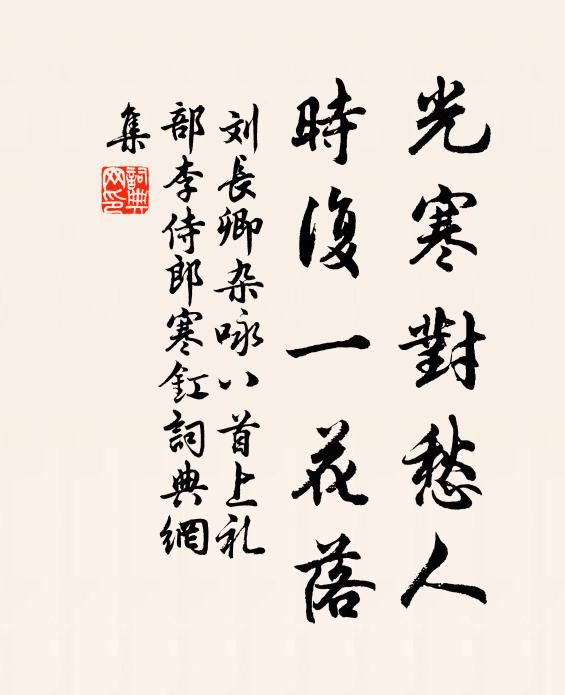 光寒對愁人
時復一花落
刘長卿杂咏八首上礼
部李侍郎寒釭詞典網
集
詞典
网印